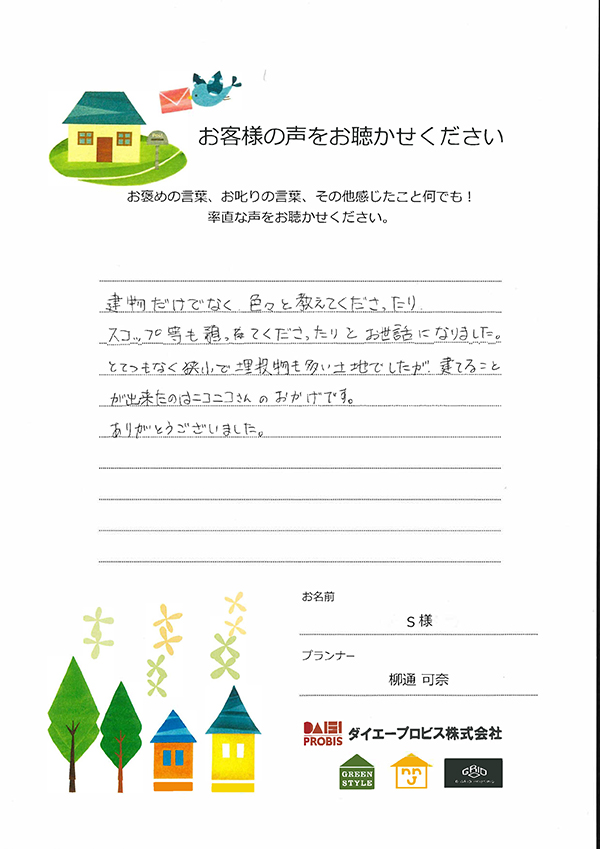 お客様の声をお聴かせください
お褒めの言葉、お叱りの言葉、その他感じたこと何でも！
率直な声をお聴かせください。
建物だけでなく、色々と教えてくださったり、
スコップ等も譲ってくださったりとお世話になりました。
とてつもなく狭小で埋設物も多い土地でしたが、建てること
が出来たのはニコニコさんのおかげです。
ありがとうございました。
お名前
S様
プランナー
柳通 可奈
DAIEI PROBIS ダイエープロビス株式会社
GREEN STYLE
GRID